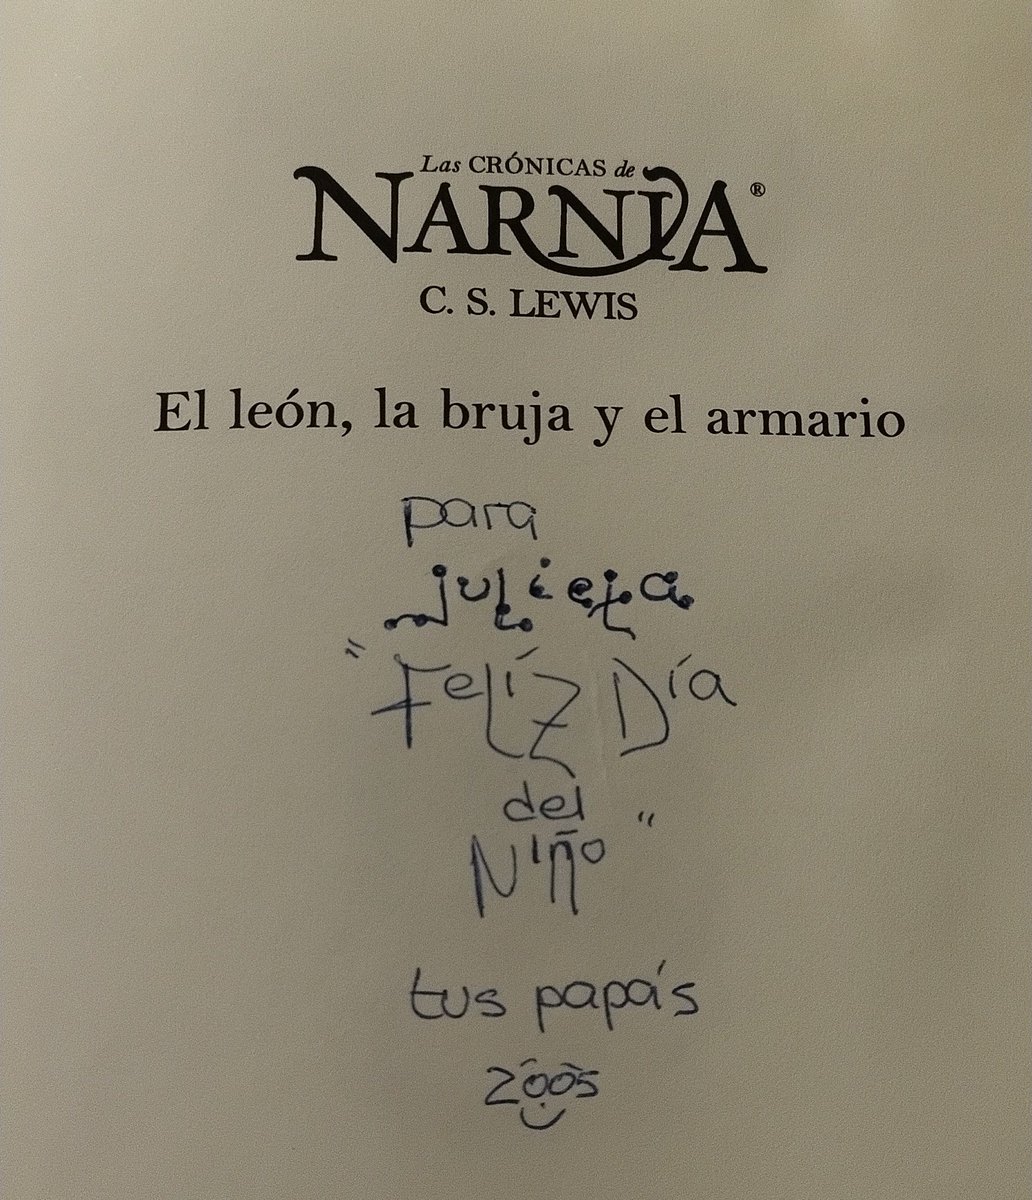 Las CRÓNICAS de
NARNIA®
C. S. LEWIS
El león, la bruja y el armario
para
julieta
"Felíz Día
del
Niño"
tus papás
2005